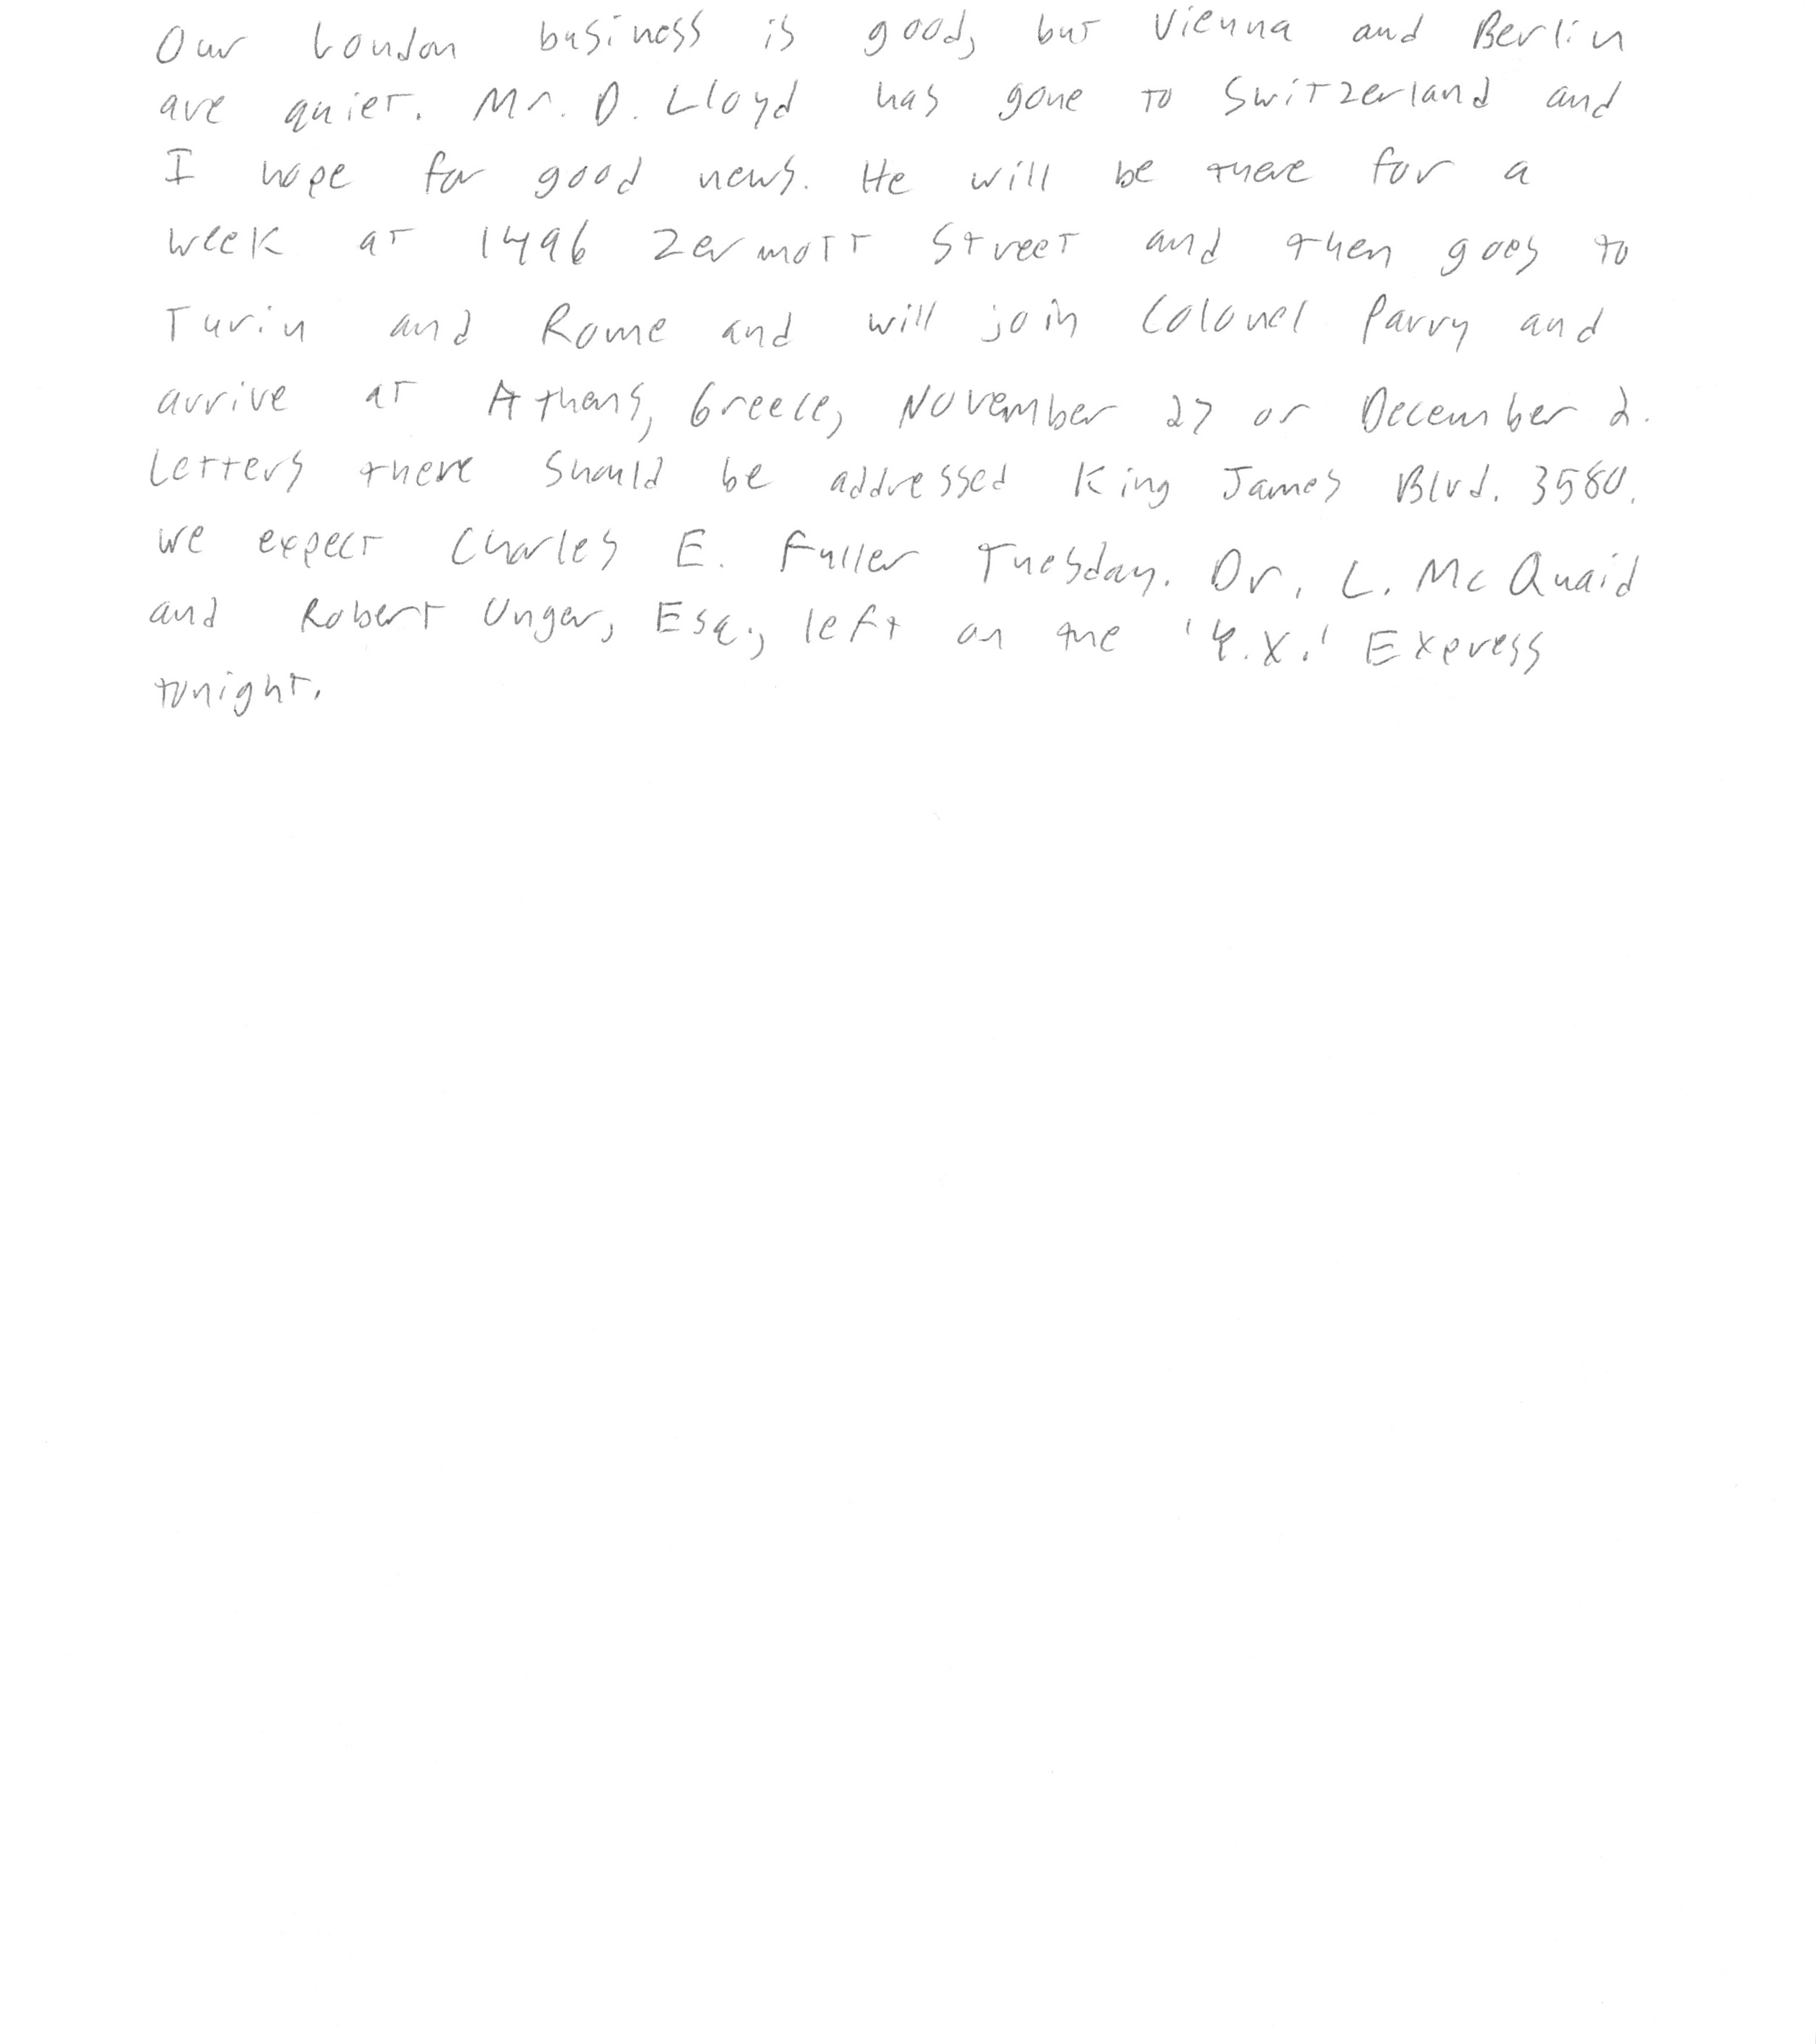 Our London business is good, but Vienna and Berlin
are quiet. Mr. D. Lloyd has gone to Switzerland and
I hope for good news. He will be there for a
week at 1496 Zermott Street and then goes to
Turin and Rome and will join Colonel Parry and
arrive at Athens, Greece, November 27 or December 2.
Letters there should be addressed King James Blvd. 3580.
We expect Charles E. Fuller Tuesday. Dr. L. McQuaid
and Robert Unger, Esq., left on the 'Y.X.' Express
tonight.